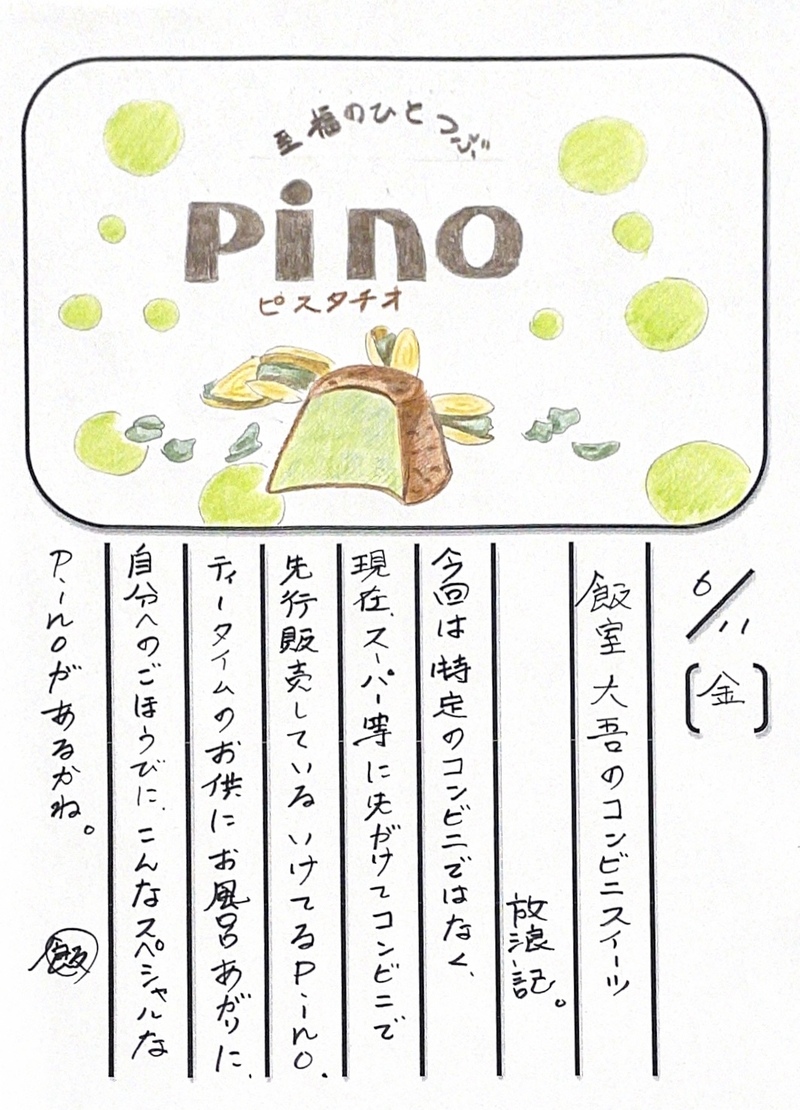 至福のひとつぶ
pino
ピスタチオ
6/11
[金]
飯室 大吾のコンビニスイーツ
放浪記。
今回は特定のコンビニではなく、
現在、スーパー等に先がけてコンビニで
先行販売している いけてるPino.
ティータイムのお供に お風呂あがりに、
自分へのごほうびに、こんなスペシャルな
Pinoがあるかね。
飯